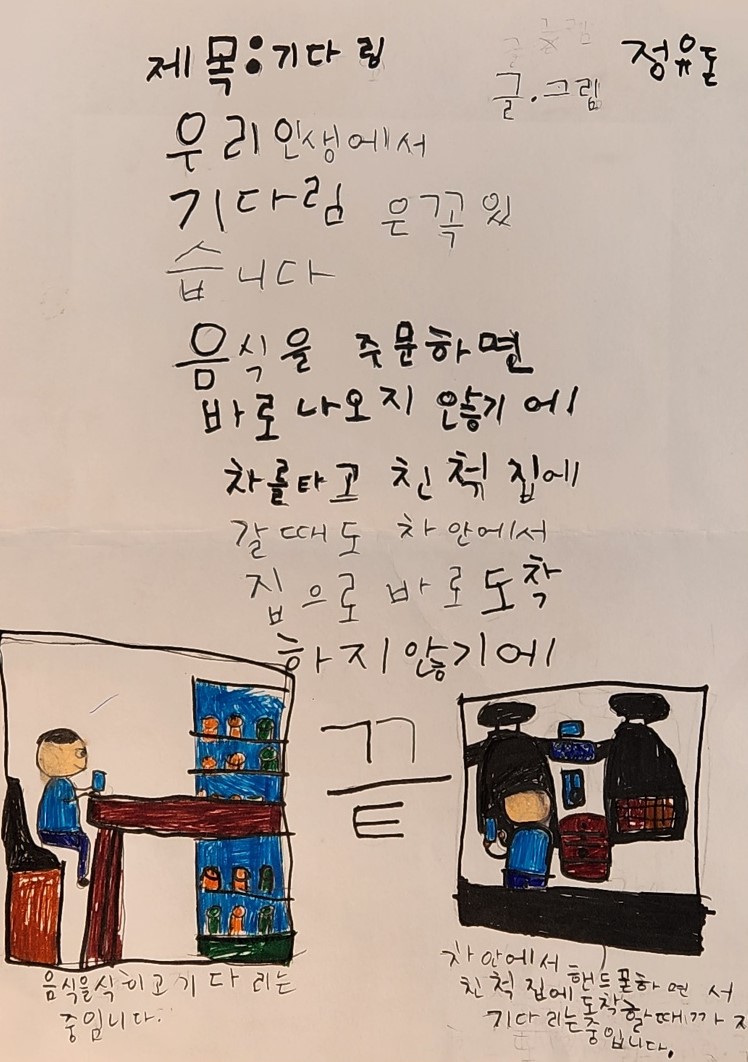 제목:기다림
글.그림
정유돈
우리 인생에서
기다림 은 꼭 있
습니다
음식을 주문하면
바로 나오지 않기에
차를타고 친척 집에
갈 때도 차 안에서
집으로 바로 도착
하지 않기에
끝
음식을 식히고 기다리는
중입니다.
차 안에서 핸드폰하면서
친척 집에 도착할때까지
기다리는중입니다.